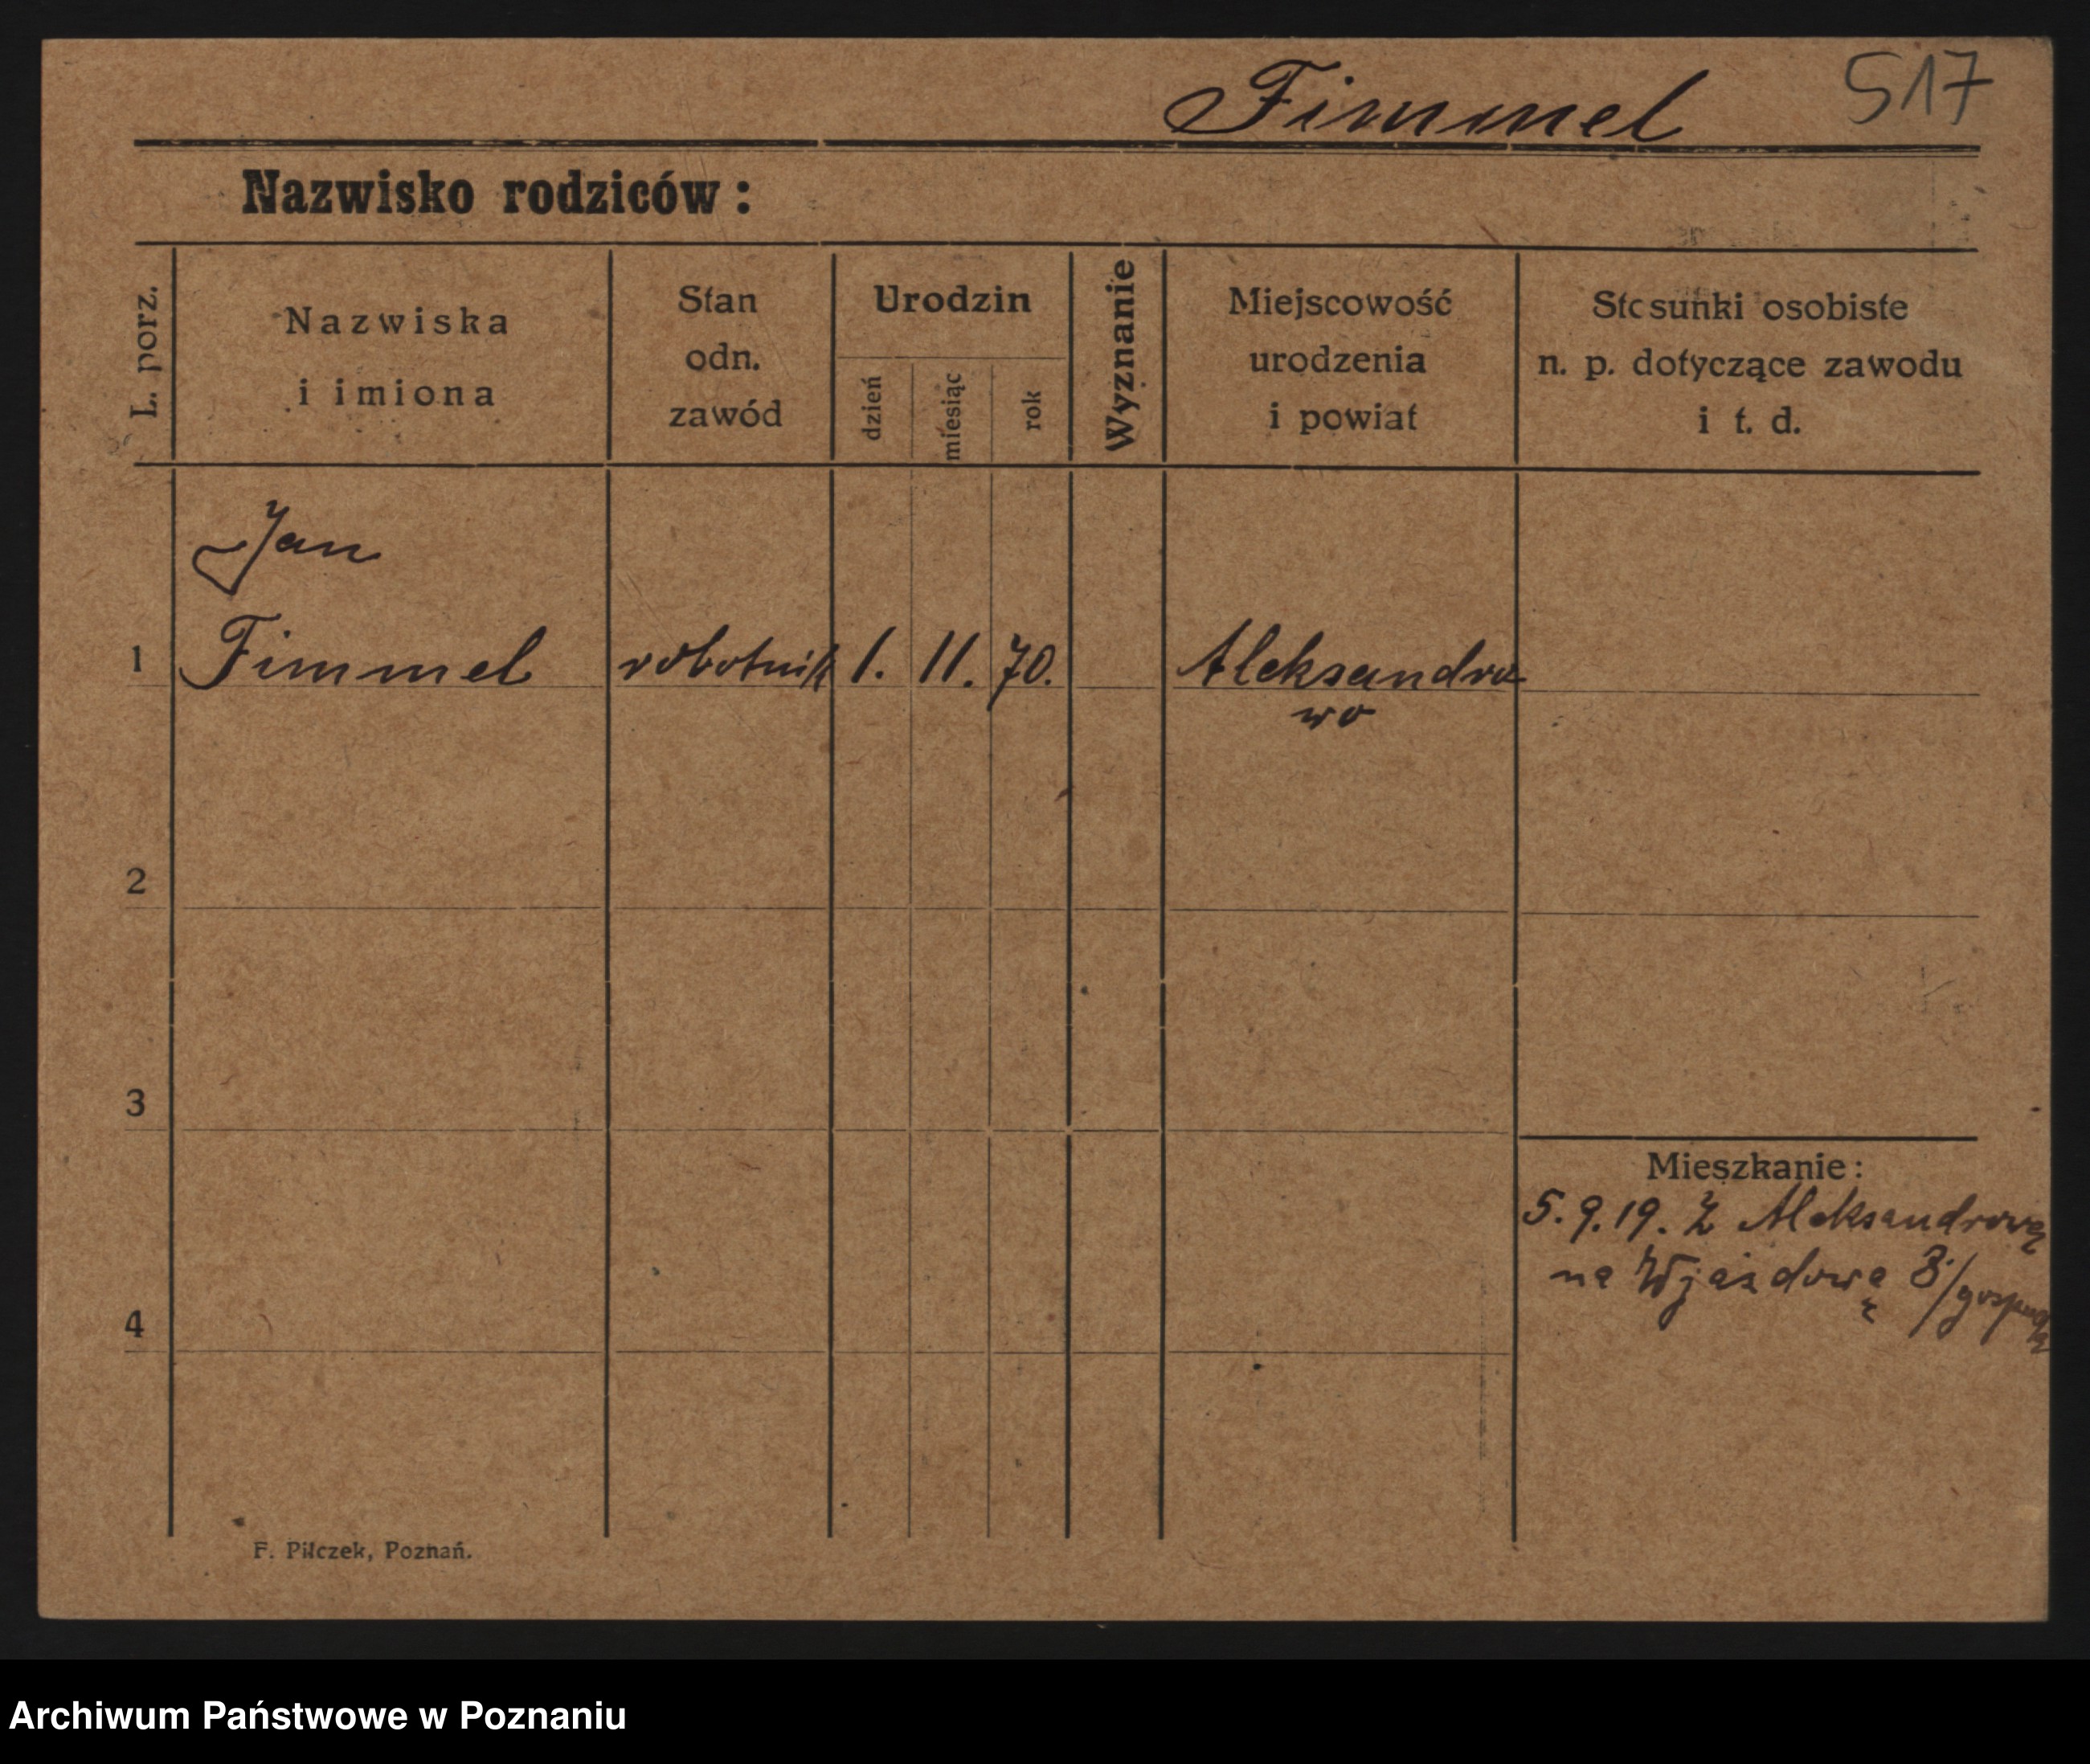 Fimmel 517
Nazwisko rodziców:
L. porz.
Nazwiska
i imiona
Stan
odn.
zawód
Urodzin
dzień
miesiąc
rok
Wyznanie
Miejscowość
urodzenia
i powiat
Stosunki osobiste
n. p. dotyczące zawodu
i t. d.
Jan
1 Fimmel robotnik 1. 11. 70. Aleksandro
wo
2
3
4
Mieszkanie:
5.9.19. Z Aleksandrowa
na Wjazdową 8/
F. Pilczek, Poznań.
Archiwum Państwowe w Poznaniu